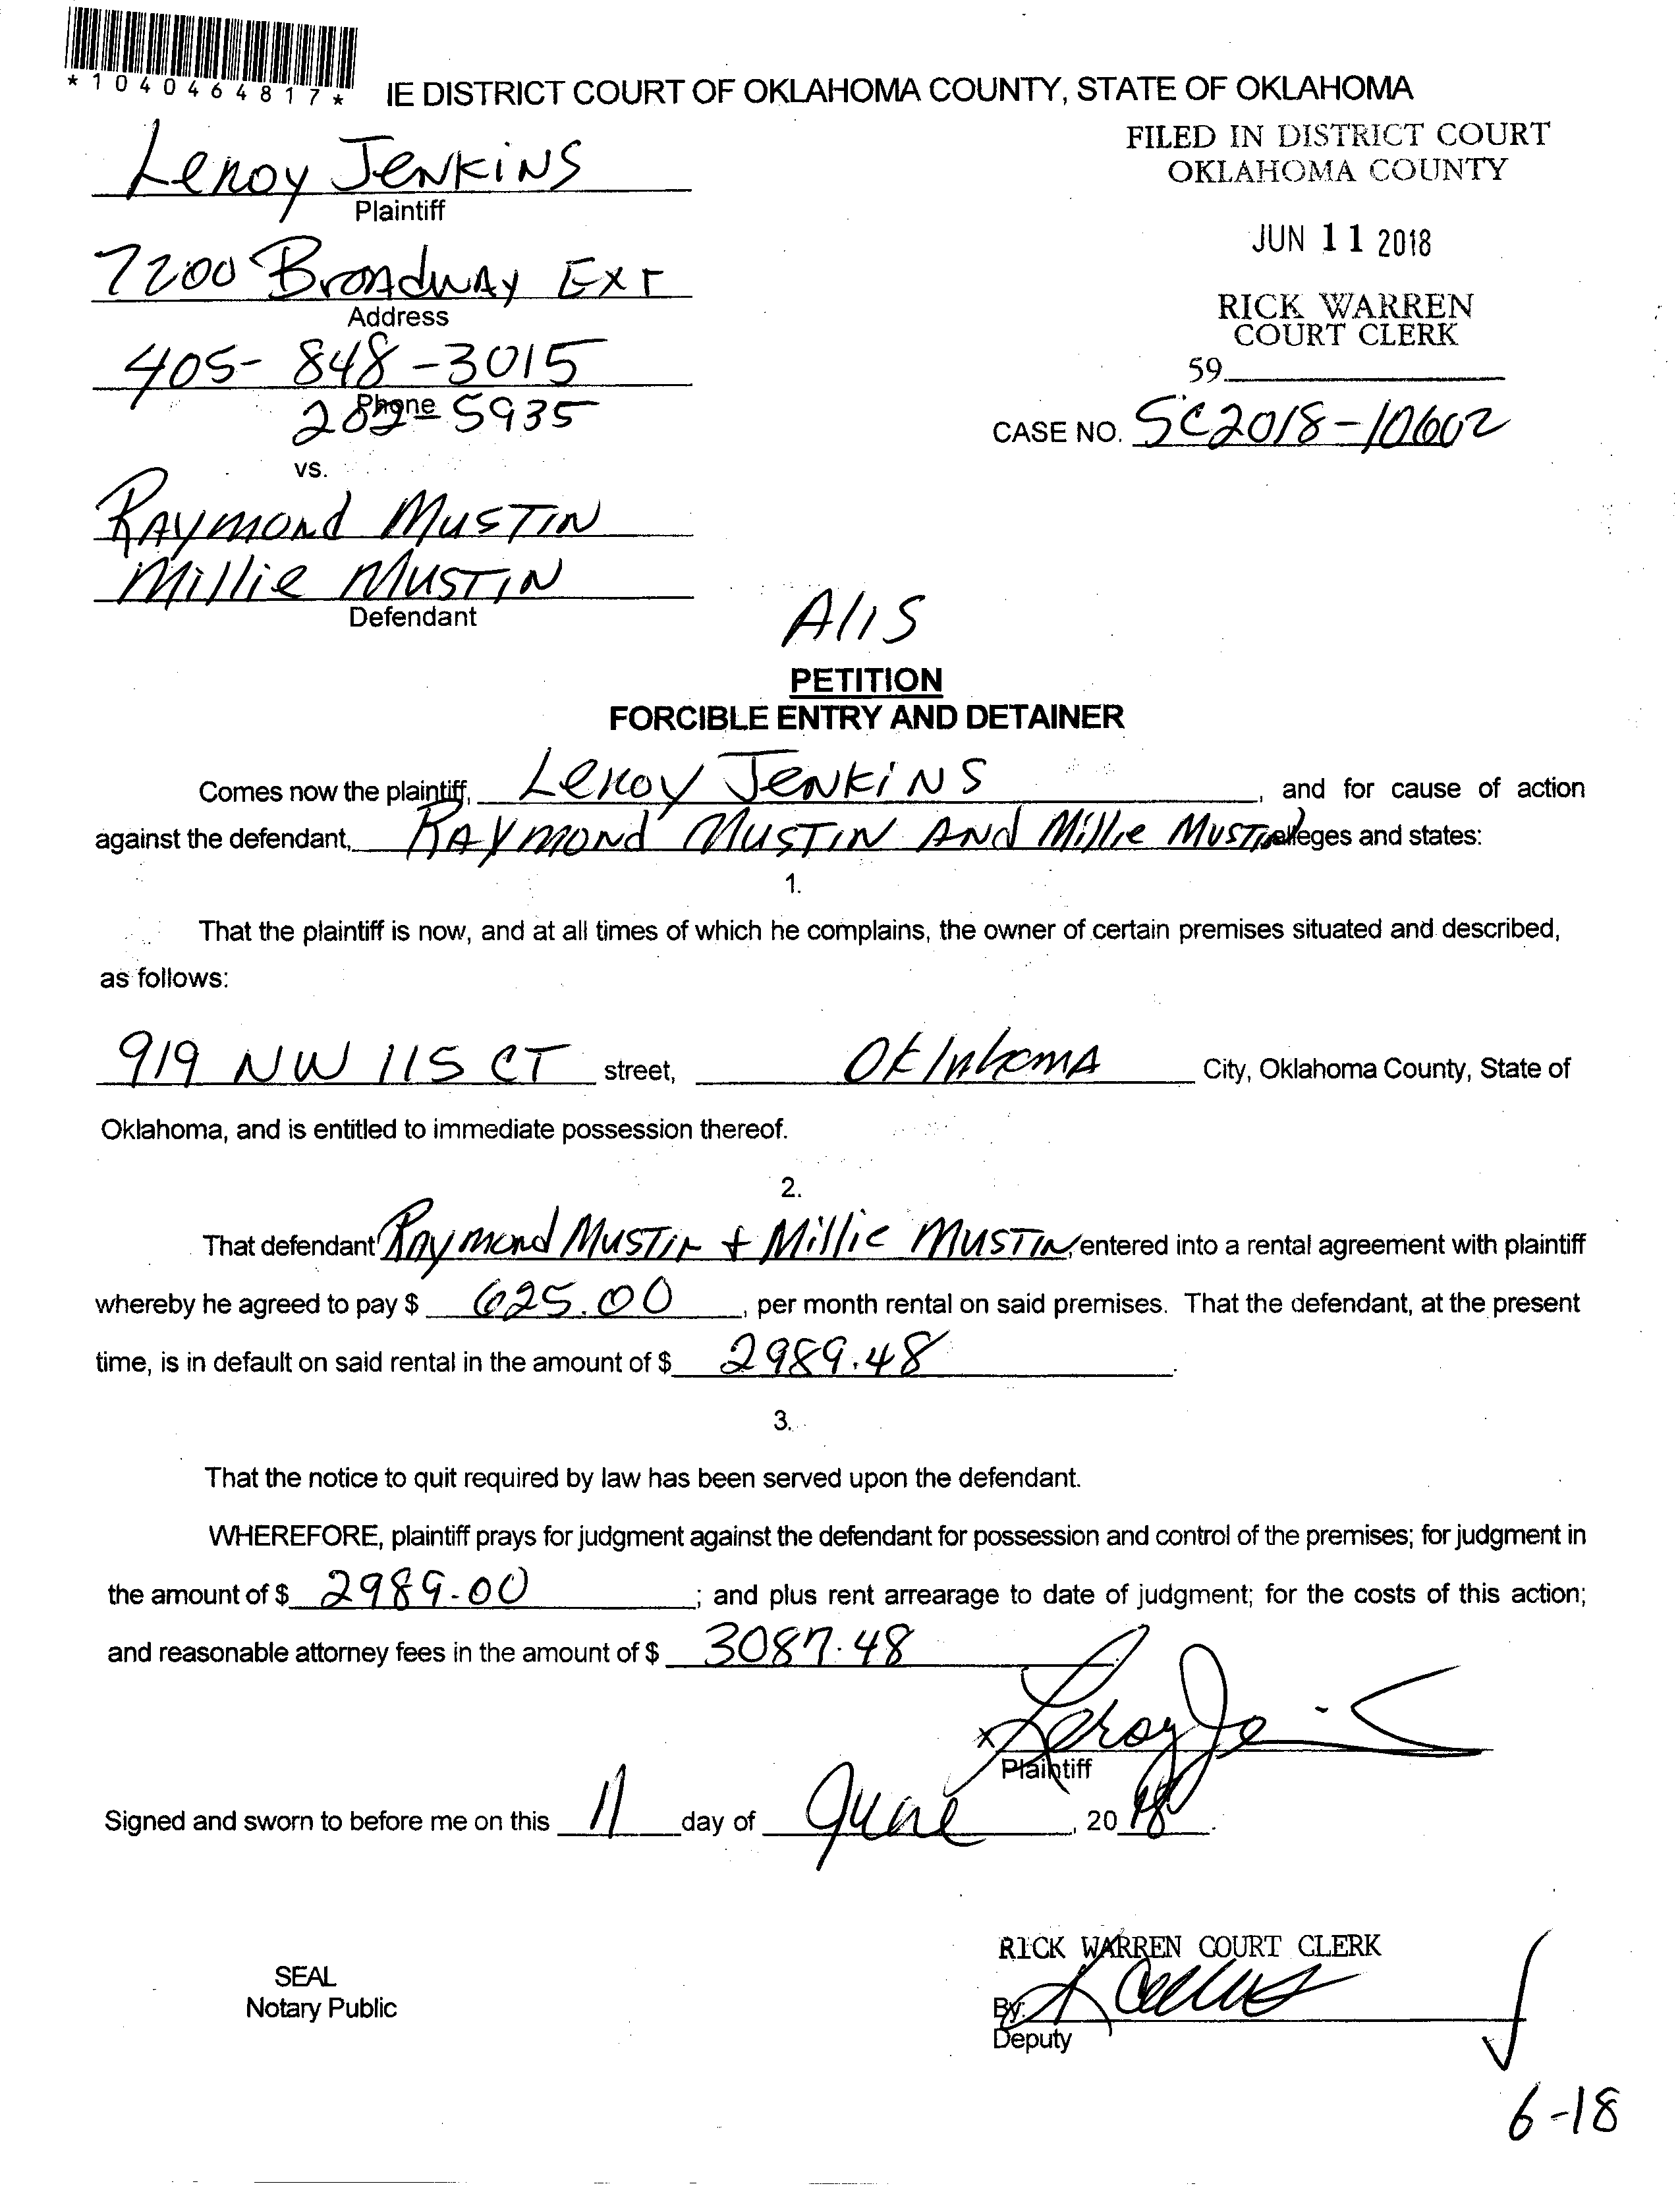 *1040464817*
IE DISTRICT COURT OF OKLAHOMA COUNTY, STATE OF OKLAHOMA
FILED IN DISTRICT COURT
OKLAHOMA COUNTY
JUN 11 2018
RICK WARREN
COURT CLERK
59
CASE NO. SC2018-10602
Leroy Jenkins
Plaintiff
7200 Broadway Ext
Address
405-848-3015
Phone
282-5935
vs.
Raymond Mustin
Millie Mustin
Defendant
Alis
PETITION
FORCIBLE ENTRY AND DETAINER
Comes now the plaintiff, Leroy Jenkins, and for cause of action
against the defendant, Raymond Mustin And Millie Mustin alleges and states:
1.
That the plaintiff is now, and at all times of which he complains, the owner of certain premises situated and described,
as follows:
919 NW 115 CT street, Oklahoma City, Oklahoma County, State of
Oklahoma, and is entitled to immediate possession thereof.
2.
That defendant Raymond Mustin + Millie Mustin, entered into a rental agreement with plaintiff
whereby he agreed to pay $ 625.00, per month rental on said premises. That the defendant, at the present
time, is in default on said rental in the amount of $ 2989.48.
3.
That the notice to quit required by law has been served upon the defendant.
WHEREFORE, plaintiff prays for judgment against the defendant for possession and control of the premises; for judgment in
the amount of $ 2989.00; and plus rent arrearage to date of judgment; for the costs of this action;
and reasonable attorney fees in the amount of $ 3087.48.
x Leroy Je
Plaintiff
Signed and sworn to before me on this 11 day of June, 2018.
RICK WARREN COURT CLERK
SEAL
Notary Public
By:
Deputy
6-18